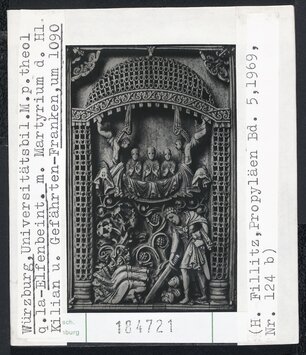 Würzburg,Universitätsbil.M.p.theol
q.la-Elfenbeint. m. Martyrium d. Hl.
Kilian u. Gefährten-Franken,um 1090
sch.
burg
184721
(H. Fillitz,Propyläen Bd. 5,1969,
Nr. 124 b)